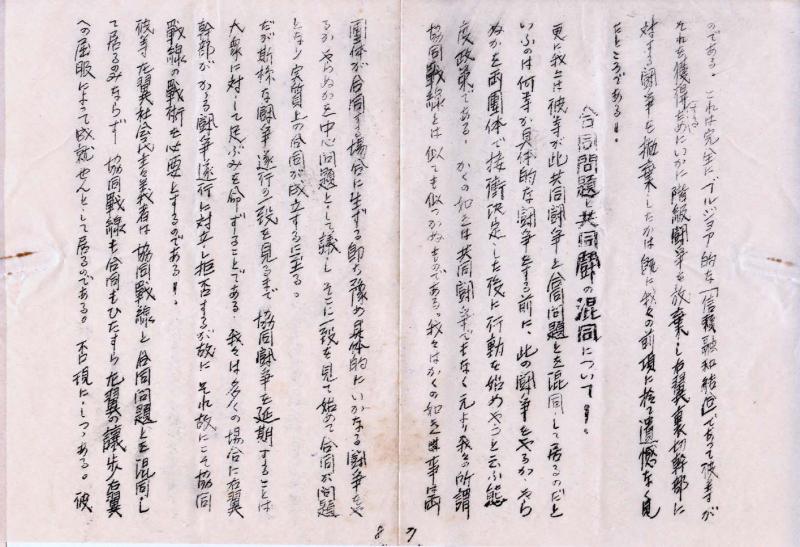 のである。これは完全にブルジョア的な「信義融和結託」であつて彼等が
それを獲得するためにいかに階級闘争を放棄し右翼裏切幹部に
対する闘争を抛棄したかは既に我々の前項に於て遺憾なく見
たところである！。
合同問題と共同闘争の混同について！。
更に我々は彼等が此共同闘争と合同問題とを混同して居るのだと
いふのは何等か具体的な闘争をする前に、此の闘争をやるか、やら
ぬかを両團体で接衝決定した後に行動を始めやうと云ふ態
度政策である。かくの如きは共同闘争でもなく元より我々の所謂
協同戰線とは似ても似つかぬものである。我々はかくの如き
團体が合同する場合に生ずる即ち豫め具体的にいかなる闘争をや
るかやらぬかを中心問題として議しそこに一致を見て始めて合同が問題
となり実質上の合同が成立するに至る。
だが斯様な闘争遂行の一致を見るまで協同闘争を延期することは
大衆に対して足ぶみを命ずることである。我々は多くの場合に右翼
幹部がかゝる闘争遂行に対立し拒否するが故に、それ故にこそ協同
戰線の戰術を必要とするのである！。
彼等左翼社会民主々義者は協同戰線と合同問題とを混同し
て居るのみならず協同戰線も合同もひたすら左翼の讓歩右翼
への屈服によつて成就せんとして居るのである。否現にしつゝある。彼
8
7